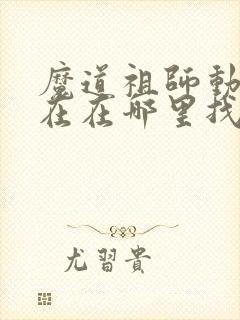 魔道祖師動
在在哪里找
尤習貴